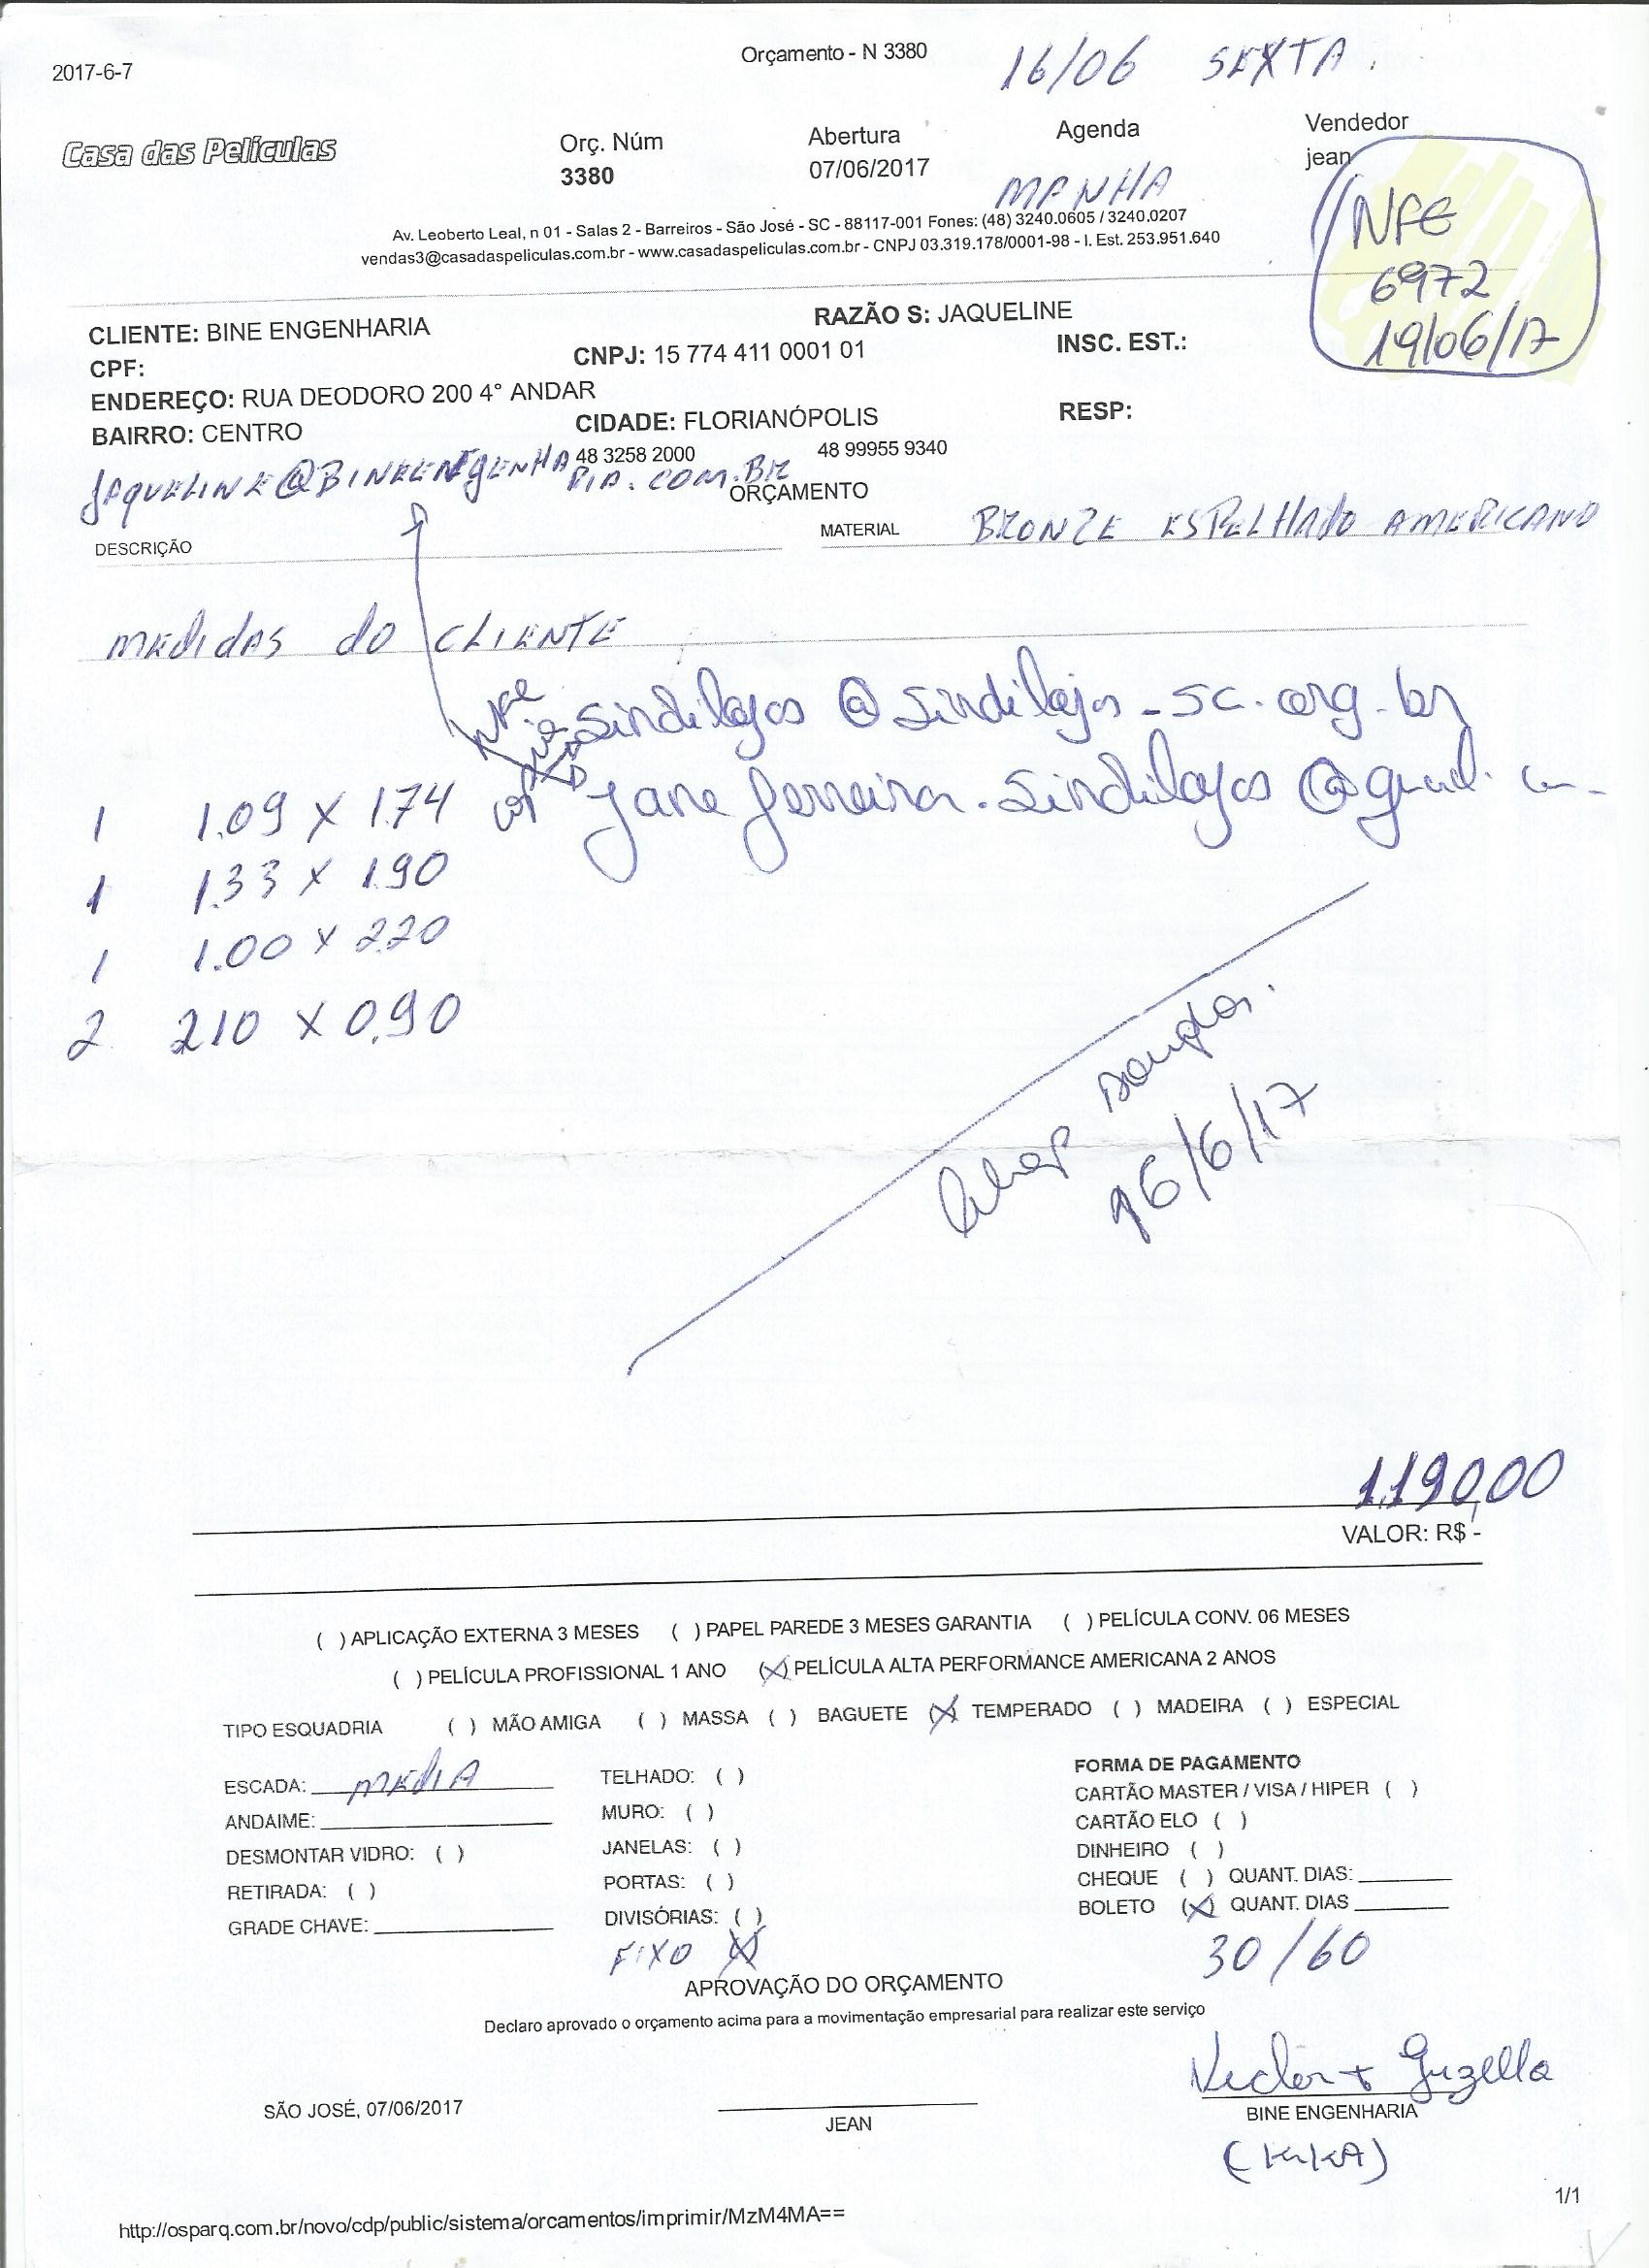 2017-6-7
Orçamento - N 3380
16/06 SEXTA.
Casa das Películas
Orç. Núm
3380
Abertura
07/06/2017
Agenda
MANHA
Vendedor
jean
NFE
6972
19/06/17
Av. Leoberto Leal, n 01 - Salas 2 - Barreiros - São José - SC - 88117-001 Fones: (48) 3240.0605 / 3240.0207
vendas3@casadaspeliculas.com.br - www.casadaspeliculas.com.br - CNPJ 03.319.178/0001-98 - I. Est. 253.951.640
CLIENTE: BINE ENGENHARIA
RAZÃO S: JAQUELINE
CPF:
CNPJ: 15 774 411 0001 01
INSC. EST.:
ENDEREÇO: RUA DEODORO 200 4° ANDAR
BAIRRO: CENTRO
CIDADE: FLORIANÓPOLIS
RESP:
48 3258 2000
48 99955 9340
JAQUELINE@BINEENGENHARIA.COM.BR
ORÇAMENTO
DESCRIÇÃO
MATERIAL BRONZE ESPELHADO AMERICANO
MEdIdAS do CLIENTE
Sindilojas@sindilojas-sc.org.br
Jane ferreira.Sindilojas@
1 1.09 X 1.74
1 1.33 X 1.90
1 1.00 X 2.20
2 2.10 X 0.90
16/6/17
1.190,00
VALOR: R$ -
( ) APLICAÇÃO EXTERNA 3 MESES ( ) PAPEL PAREDE 3 MESES GARANTIA ( ) PELÍCULA CONV. 06 MESES
( ) PELÍCULA PROFISSIONAL 1 ANO (X) PELÍCULA ALTA PERFORMANCE AMERICANA 2 ANOS
TIPO ESQUADRIA ( ) MÃO AMIGA ( ) MASSA ( ) BAGUETE (X) TEMPERADO ( ) MADEIRA ( ) ESPECIAL
ESCADA: MEdIA
ANDAIME:
DESMONTAR VIDRO: ( )
RETIRADA: ( )
GRADE CHAVE:
TELHADO: ( )
MURO: ( )
JANELAS: ( )
PORTAS: ( )
DIVISÓRIAS: ( )
FIXO (X)
FORMA DE PAGAMENTO
CARTÃO MASTER / VISA / HIPER ( )
CARTÃO ELO ( )
DINHEIRO ( )
CHEQUE ( ) QUANT. DIAS:
BOLETO (X) QUANT. DIAS
30/60
APROVAÇÃO DO ORÇAMENTO
Declaro aprovado o orçamento acima para a movimentação empresarial para realizar este serviço
SÃO JOSÉ, 07/06/2017
JEAN
Guzella
BINE ENGENHARIA
(KIKA)
1/1
http://osparq.com.br/novo/cdp/public/sistema/orcamentos/imprimir/MzM4MA==